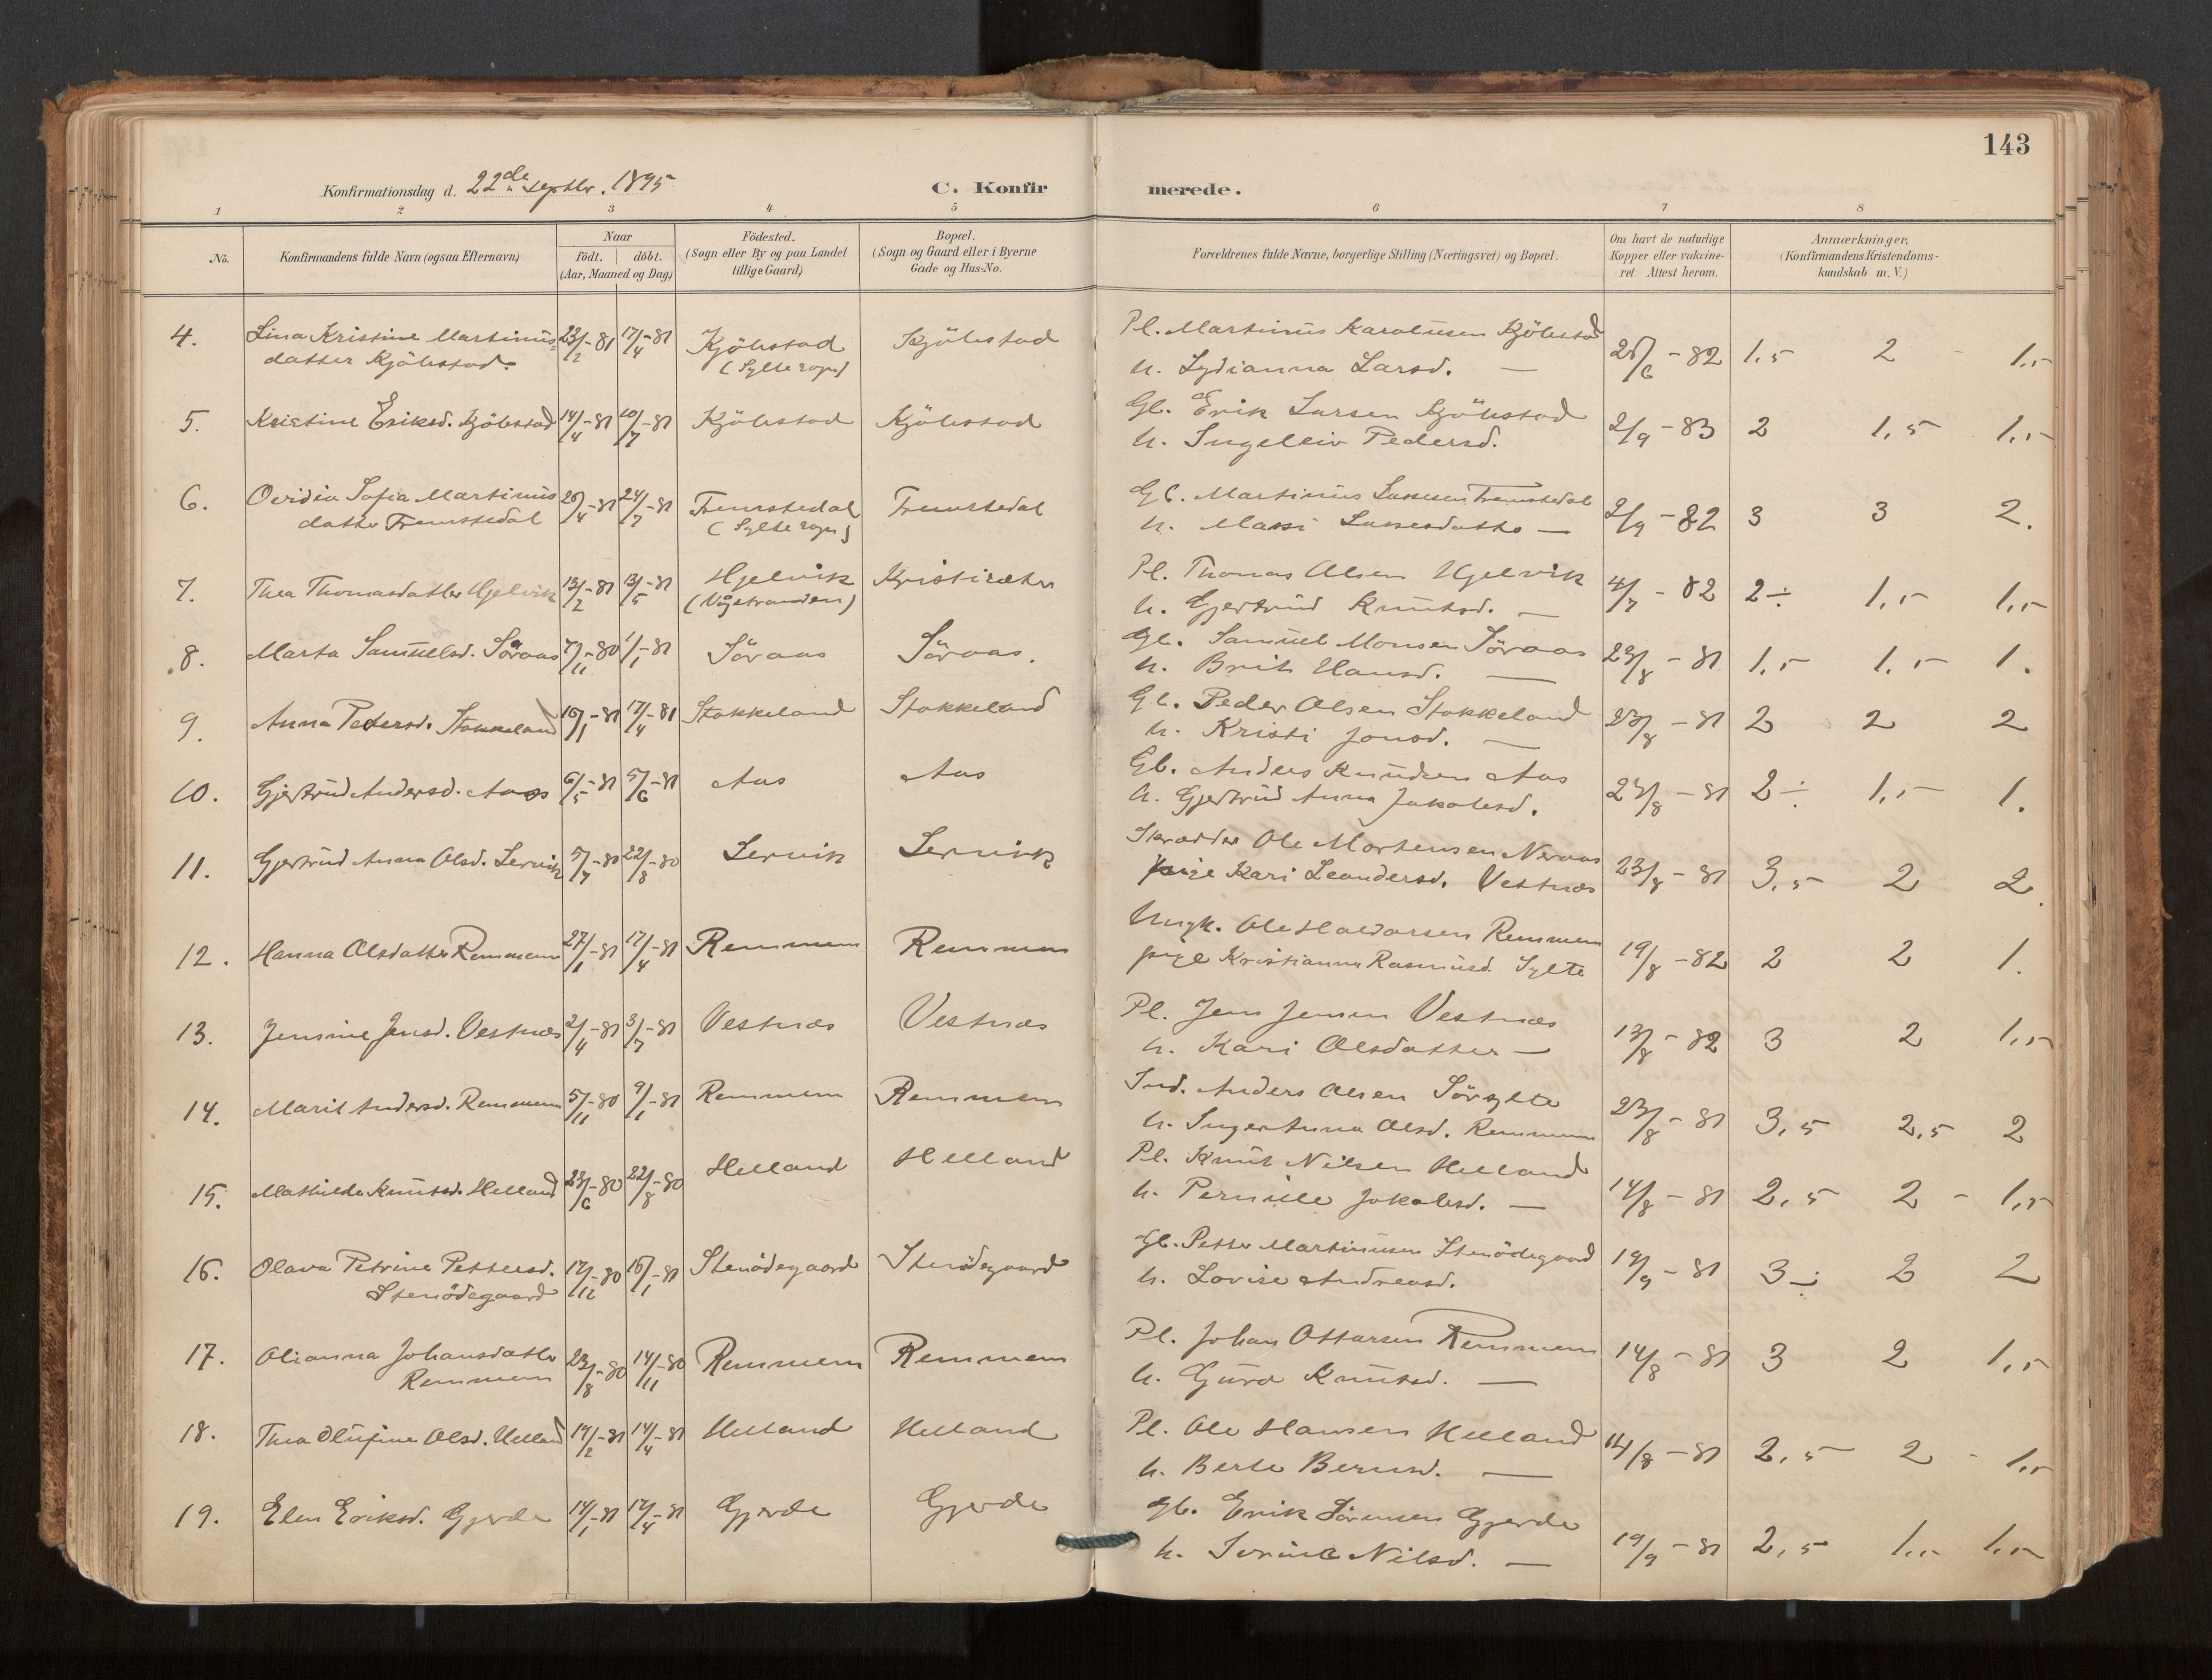 143
Konfirmationsdag d. 22de Septbr. 1895
C. Konfir merede.
1 2 3 4 5 6 7 8
No. Konfirmandens fulde Navn (ogsaa Efternavn) Naar født. døbt. (Aar, Maaned og Dag) Födested. (Sogn eller By og paa Landet tillige Gaard) Bopæl. (Sogn og Gaard eller i Byerne Gade og Hus-No. Forældrenes fulde Navne, borgerlige Stilling (Næringsvei) og Bopæl. Om havt de naturlige Kopper eller vakcineret Attest herom. Anmærkninger. (Konfirmandens Kristendomskundskab m. V.)
4. Lina Kristine Martinus= 23/2-81 17/4-81 Kjöbstad Kjöbstad Pl. Martinus Karolusen Kjöbstad 25/6-82 1,5 2 - 1,5
datter Kjöbstad. (Sylte sogn) h. Lydianna Larsd. —
5. Kristine Eriksd. Kjöbstad 14/4-81 10/7-81 Kjöbstad Kjöbstad Gb. Erik Larsen Kjöbstad 2/9-83 2 1,5 1,5
h. Ingeleiv Pedersd.
6. Ovidia Sofia Martinus 24/7-81 Fremstedal Fremstedal Gb. Martinus Fremstedal 2/9-82 3 3 2.
datter Fremstedal (Sylte sogn) h. —
7. Thea Thomasdatter Hjelvik 13/2-81 13/5-81 Hjelvik Pl. Thomas Olsen Hjelvik 4/7-82 2÷ 1,5 1,5
(Vågstranden) h. Gjertrud Knutsd. —
8. Marta Samuelsd. Söraas 7/11-80 1/1-81 Söraas Söraas. Gb. Samuel Monsen Söraas 23/8-81 1,5 1,5 1.
h. Brit Hansd. —
9. Anna Pedersd. Stokkeland 16/1-81 17/4-81 Stokkeland Stokkeland Gb. Peder Olsen Stokkeland 23/8-81 2 2 2
h. Kristi Jonsd. —
10. Gjertrud Andersd. Aas 6/5-81 5/6-81 Aas Aas Gb. Anders Knudsen Aas 23/8-81 2÷ 1,5 1.
h. Gjertrud Anna Jakobsd.
11. Gjertrud Anna Olsd. Lervik 5/7-80 22/8-80 Lervik Lervik Skrædder Ole Mortensen Neraas 23/8-81 3,5 2 2.
pige Kari Leandersd. Vestnæs
12. Hanna Olsdatter Remmem 27/1-81 17/4-81 Remmem Remmem Ungk. Ole Haldorsen Remmem 19/8-82 2 2 1.
pige Kristianna Rasmusd. Sylte
13. Jensine Jensd. Vestnæs 2/4-81 3/7-81 Vestnæs Vestnæs Pl. Jens Jensen Vestnæs 13/8-82 3 2 1,5
h. Kari Olsdatter —
14. Marit Andersd. Remmem 5/11-80 9/1-81 Remmem Remmem Ind. Anders Olsen Sörsylte 23/8-81 3,5 2,5 2
h. Inger Anna Olsd. Remmem
15. Mathilde Knutsd. Helland 23/6-80 22/8-80 Helland Helland Pl. Knut Nilsen Helland 14/8-81 2,5 2 - 1,5
h. Pernille Jakobsd. —
16. Olava Petrine Pettersd. 17/12-80 16/1-81 Stenödegaard Stenödegaard Gb. Petter Martinusen Stenödegaard 19/9-81 3÷ 2 2
Stenödegaard h. Lovise Andreasd.
17. Olianna Johansdatter 23/8-80 14/11-80 Remmem Remmem Pl. Johan Ottarsen Remmem 14/8-81 3 2 1,5
Remmem h. Guro Knutsd. —
18. Thea Olufine Olsd. Helland 14/2-81 14/4-81 Helland Helland Pl. Ole Hansen Helland 14/8-81 2,5 2 - 1,5
h. Berte Berntsd. —
19. Elen Eriksd. Gjerde 14/1-81 17/4-81 Gjerde Gjerde Gb. Erik Sörensen Gjerde 19/9-81 2,5 1,5 1,5
h. Nilsd. —